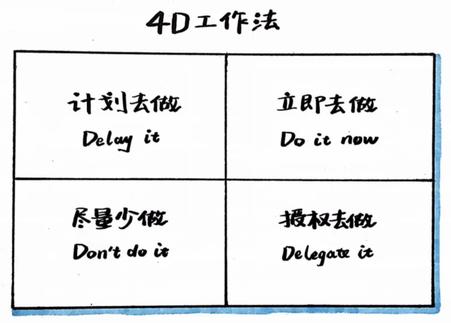 4D工作法
计划去做
Delay it
立即去做
Do it now
尽量少做
Don't do it
授权去做
Delegate it